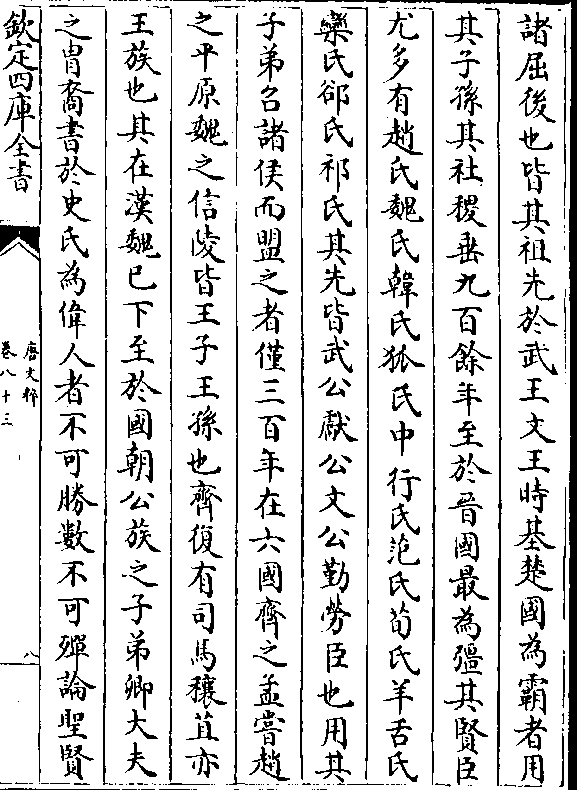 諸屈後也皆其祖先於武王文王時基楚國為霸者用
其子孫其社稷垂九百餘年至於晉國最為彊其賢臣
尤多有趙氏魏氏韓氏狐氏中行氏范氏荀氏羊舌氏
欒氏郤氏祁氏其先皆武公獻公文公勤勞臣也用其
子弟召諸侯而盟之者僅三百年在六國齊之孟嘗趙
之平原魏之信陵皆王子王孫也齊復有司馬穰苴亦
王族也其在漢魏已下至於國朝公族之子弟卿大夫
之胄裔書於史氏為偉人者不可勝數不可殫論聖賢
欽定四庫全書
唐文粹
卷八十三
八